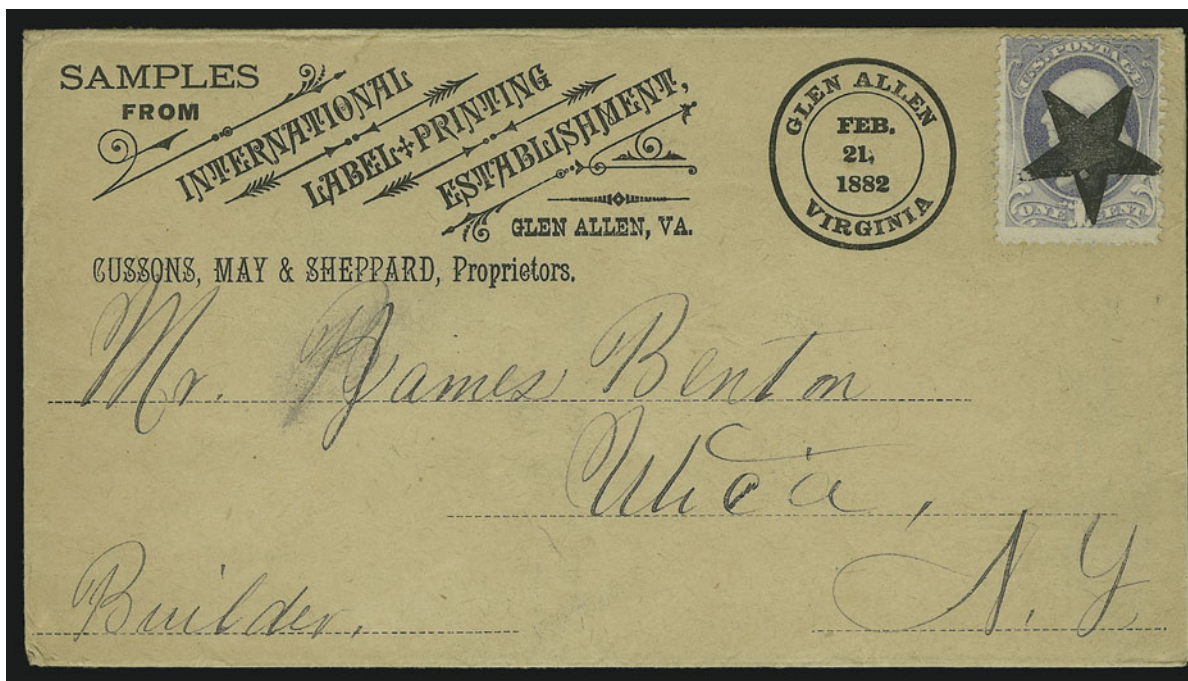 SAMPLES
FROM
INTERNATIONAL
LABEL & PRINTING
ESTABLISHMENT,
GLEN ALLEN, VA.
CUSSONS, MAY & SHEPPARD, Proprietors.
GLEN ALLEN
FEB.
21,
1882
VIRGINIA
U.S. POSTAGE
ONE CENT
Mr. James Benton
Utica,
N. Y
Builder.